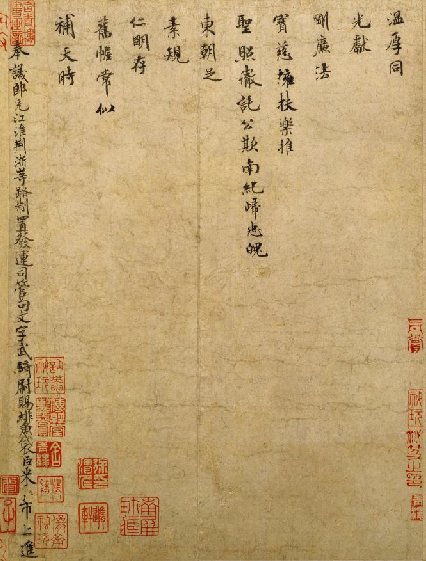 溫厚同
光獻
剛廉法
寶慈擁扶樂推
聖照徹託公欺南紀啼忠魄
東朝足
素規
仁明存
舊幄常似
補天時
奉議郎充江淮荊浙等路制置發運司管勾文字武騎尉賜緋魚袋臣米芾上進